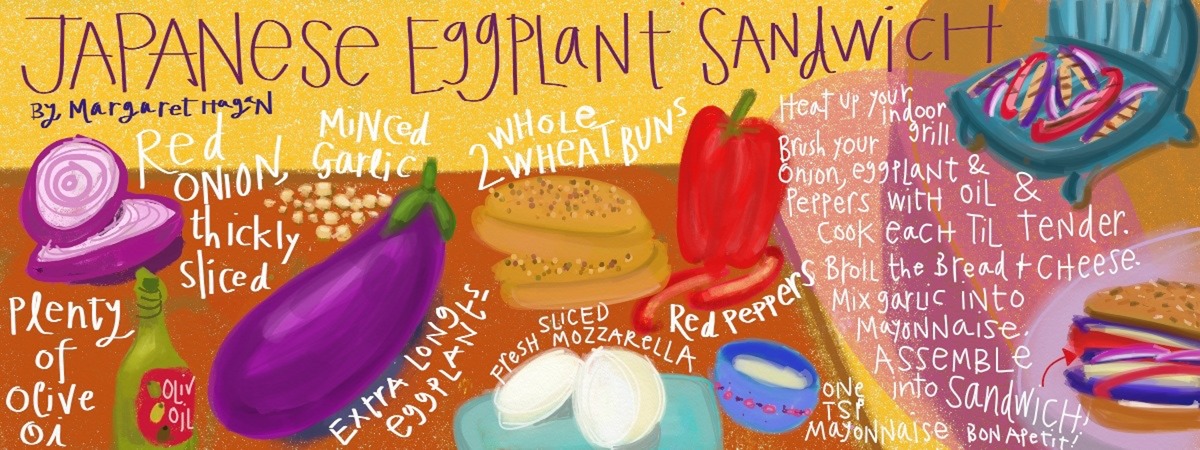 JAPANESE EggPLANT SANdWiCH
By Margaret Hagen
Red
ONiON,
thickly
sliced
MiNCed
garlic
2 WHOLE
WHEAT BUNS
Plenty
of
Olive
Oi
OLIV
OIL
EXTRA LONg
eggPLANTS
SLiCED
FResH MOZZARELLA
Red PePPeRS
ONe
TSP
MayoNNaise
Heat up your
indoor
grill.
Brush your
Onion, eggplant &
Peppers with OiL &
COOK eACH TiL TeNDeR.
BROiL the BReaD + CHeese.
Mix garlic INTO
MayoNNaise.
ASSEMBLE
into SaNDWiCH,
BON APeTiT!